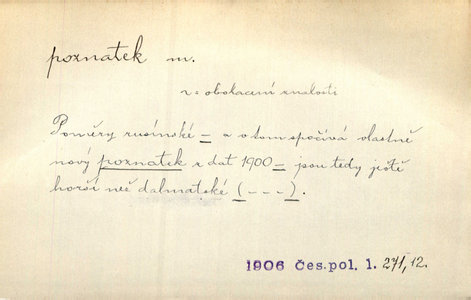 poznatek m.
z= obohacení znalostí
Poměry rusínské = a v tom spočívá vlastně
nový poznatek z dat 1900 = jsou tedy ještě
horší než dalmatské (---).
1906 čes. pol. 1. 271, 12.